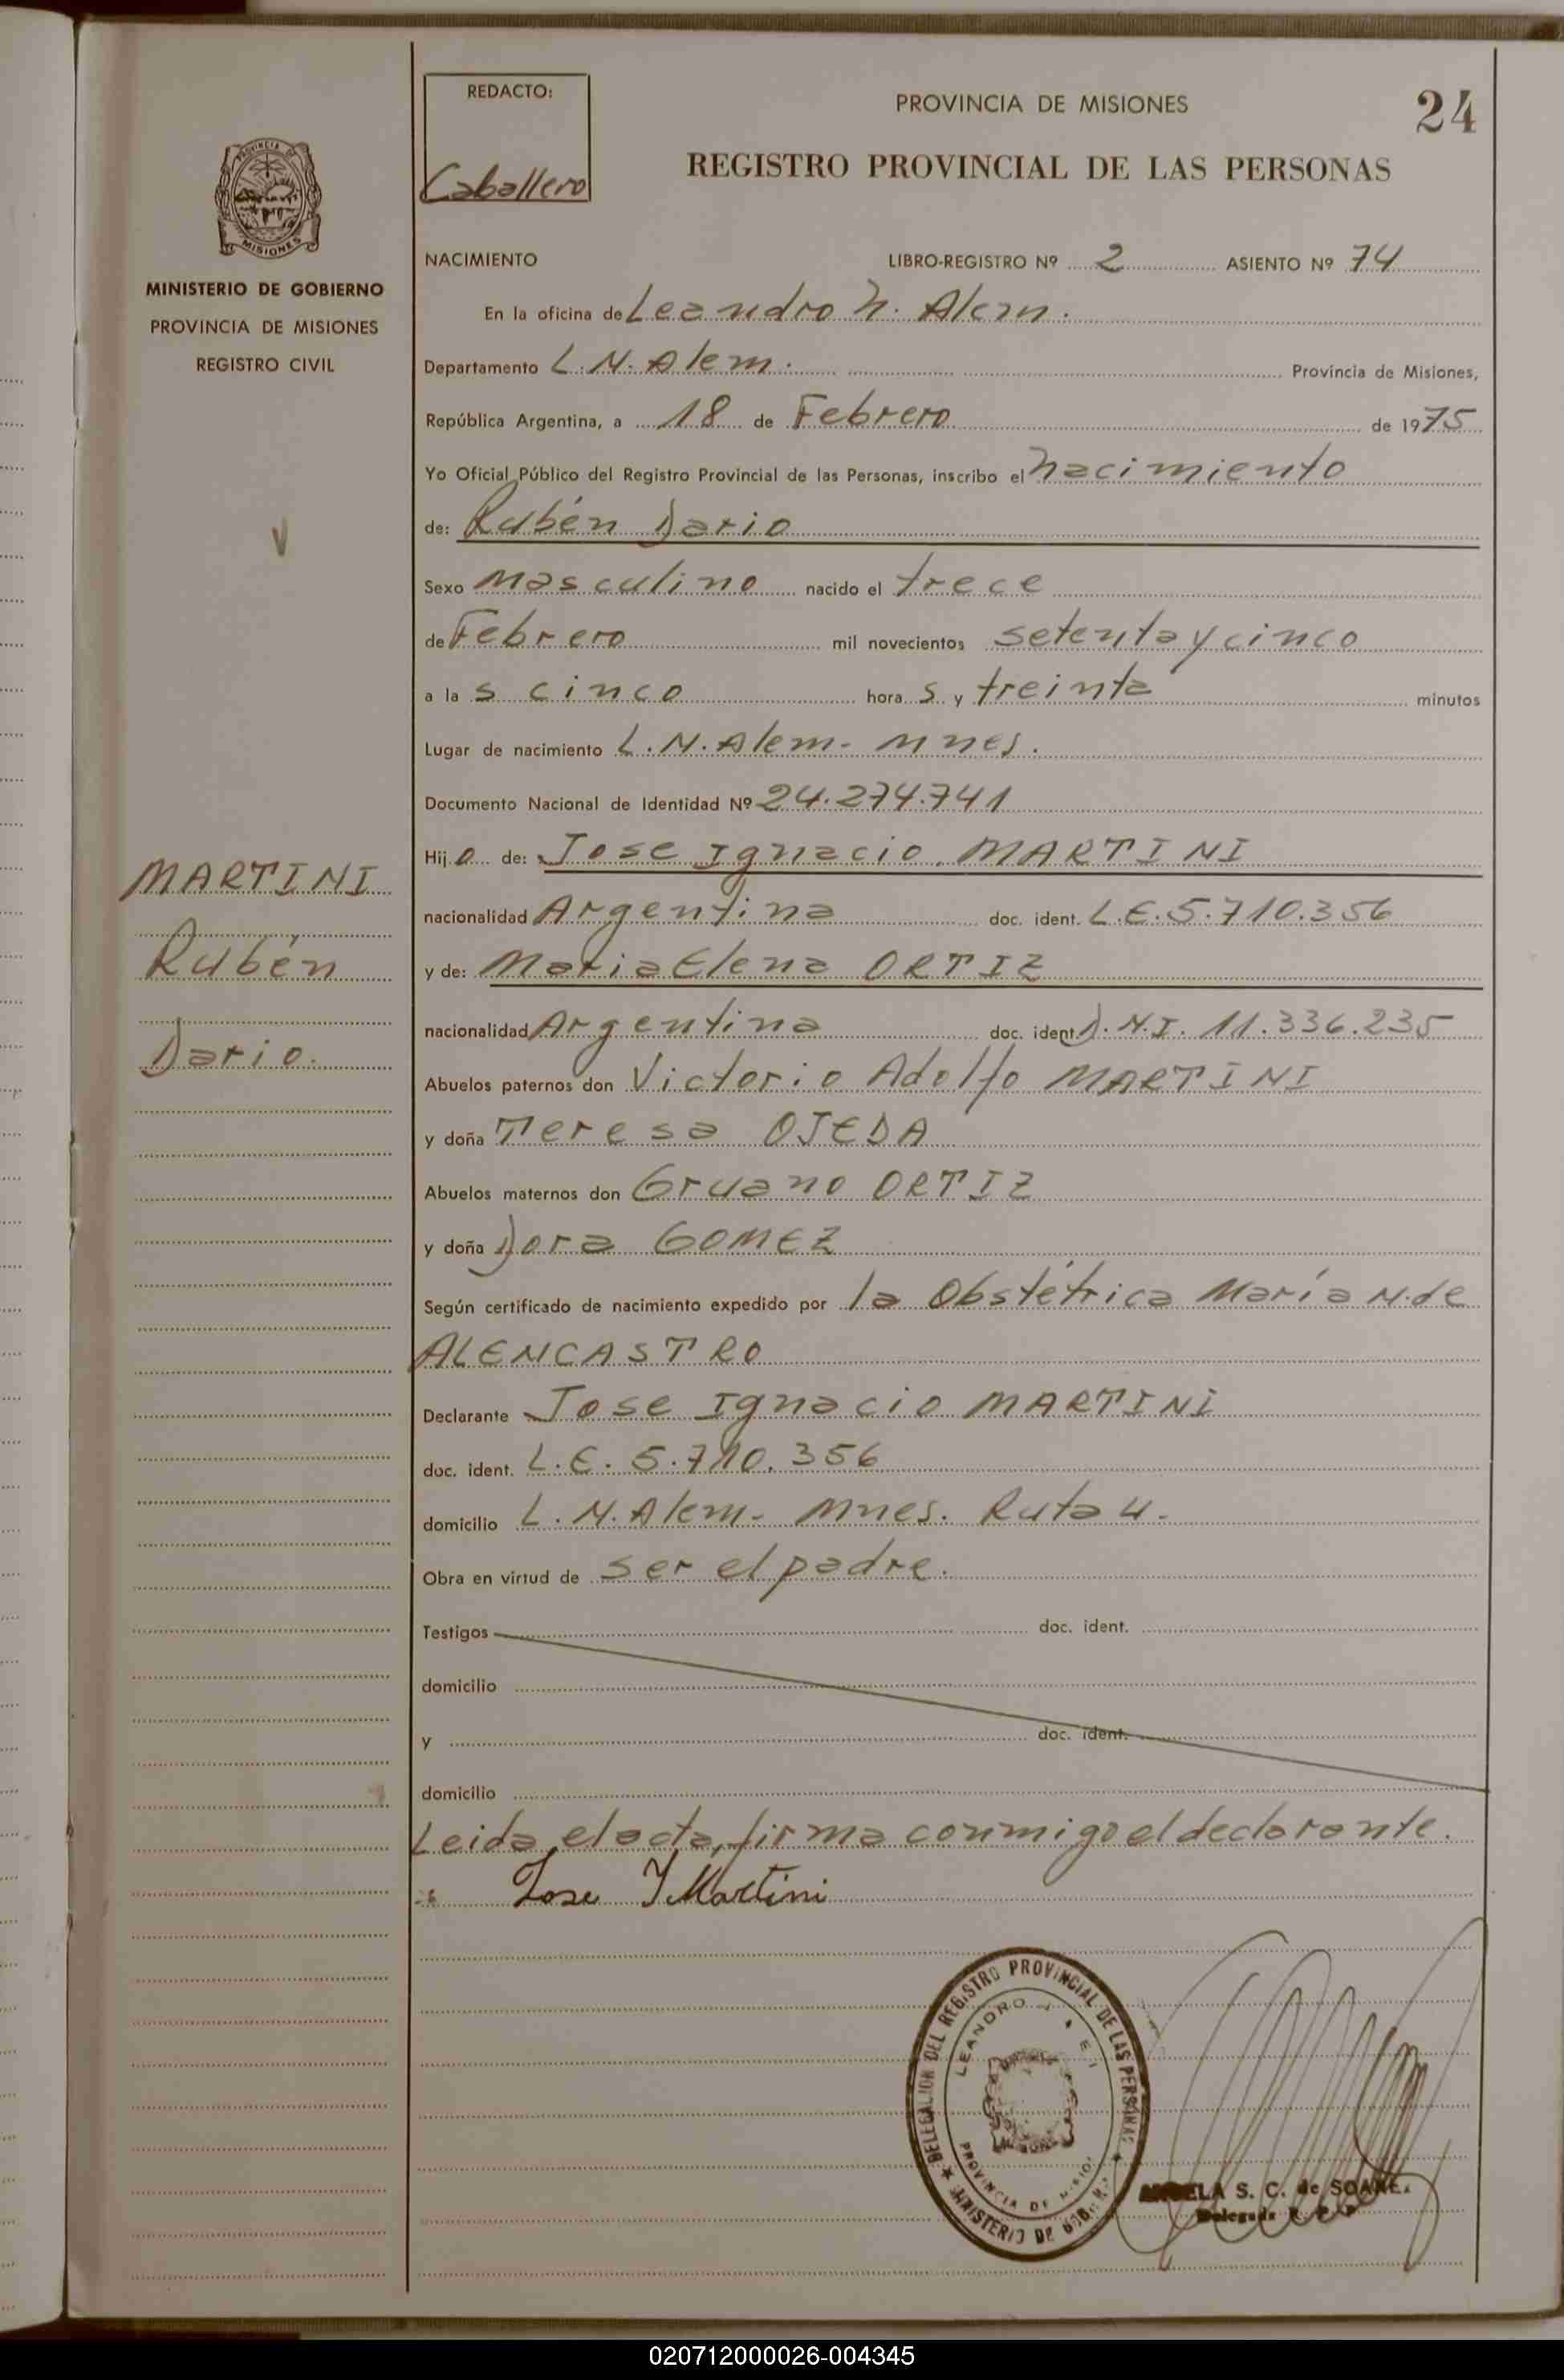 REDACTO:
Caballero
PROVINCIA DE MISIONES
24
REGISTRO PROVINCIAL DE LAS PERSONAS
PROVINCIA DE
MISIONES
MINISTERIO DE GOBIERNO
PROVINCIA DE MISIONES
REGISTRO CIVIL
NACIMIENTO LIBRO-REGISTRO Nº 2 ASIENTO Nº 74
En la oficina de Leandro N. Alem.
Departamento L.N. Alem. Provincia de Misiones,
República Argentina, a 18 de Febrero de 1975
Yo Oficial Público del Registro Provincial de las Personas, inscribo el nacimiento
de: Rubén Dario
Sexo masculino nacido el trece
de Febrero mil novecientos setenta y cinco
a las cinco horas y treinta minutos
Lugar de nacimiento L.N. Alem- Mnes.
Documento Nacional de Identidad Nº 24.274.741
Hijo de: Jose Ignacio MARTINI
nacionalidad Argentina doc. ident. L.E. 5.710.356
y de: Maria Elena ORTIZ
nacionalidad Argentina doc. ident. D.N.I. 11.336.235
Abuelos paternos don Victorio Adolfo MARTINI
y doña Teresa OJEDA
Abuelos maternos don Gruano ORTIZ
y doña Dora GOMEZ
Según certificado de nacimiento expedido por la Obstétrica María N. de
ALENCASTRO
Declarante Jose Ignacio MARTINI
doc. ident. L.E. 5.710.356
domicilio L.N. Alem- Mnes. Ruta 4.
Obra en virtud de ser el padre.
Testigos doc. ident.
domicilio
y doc. ident.
domicilio
Leida el acta, firma conmigo el declarante.
Jose I Martini
MARTINI
Rubén
Dario.
DELEGACION DEL REGISTRO PROVINCIAL DE LAS PERSONAS
LEANDRO
PROVINCIA DE
MINISTERIO DE
S. C. de SOARE.
Delegada R. P. P.
020712000026-004345